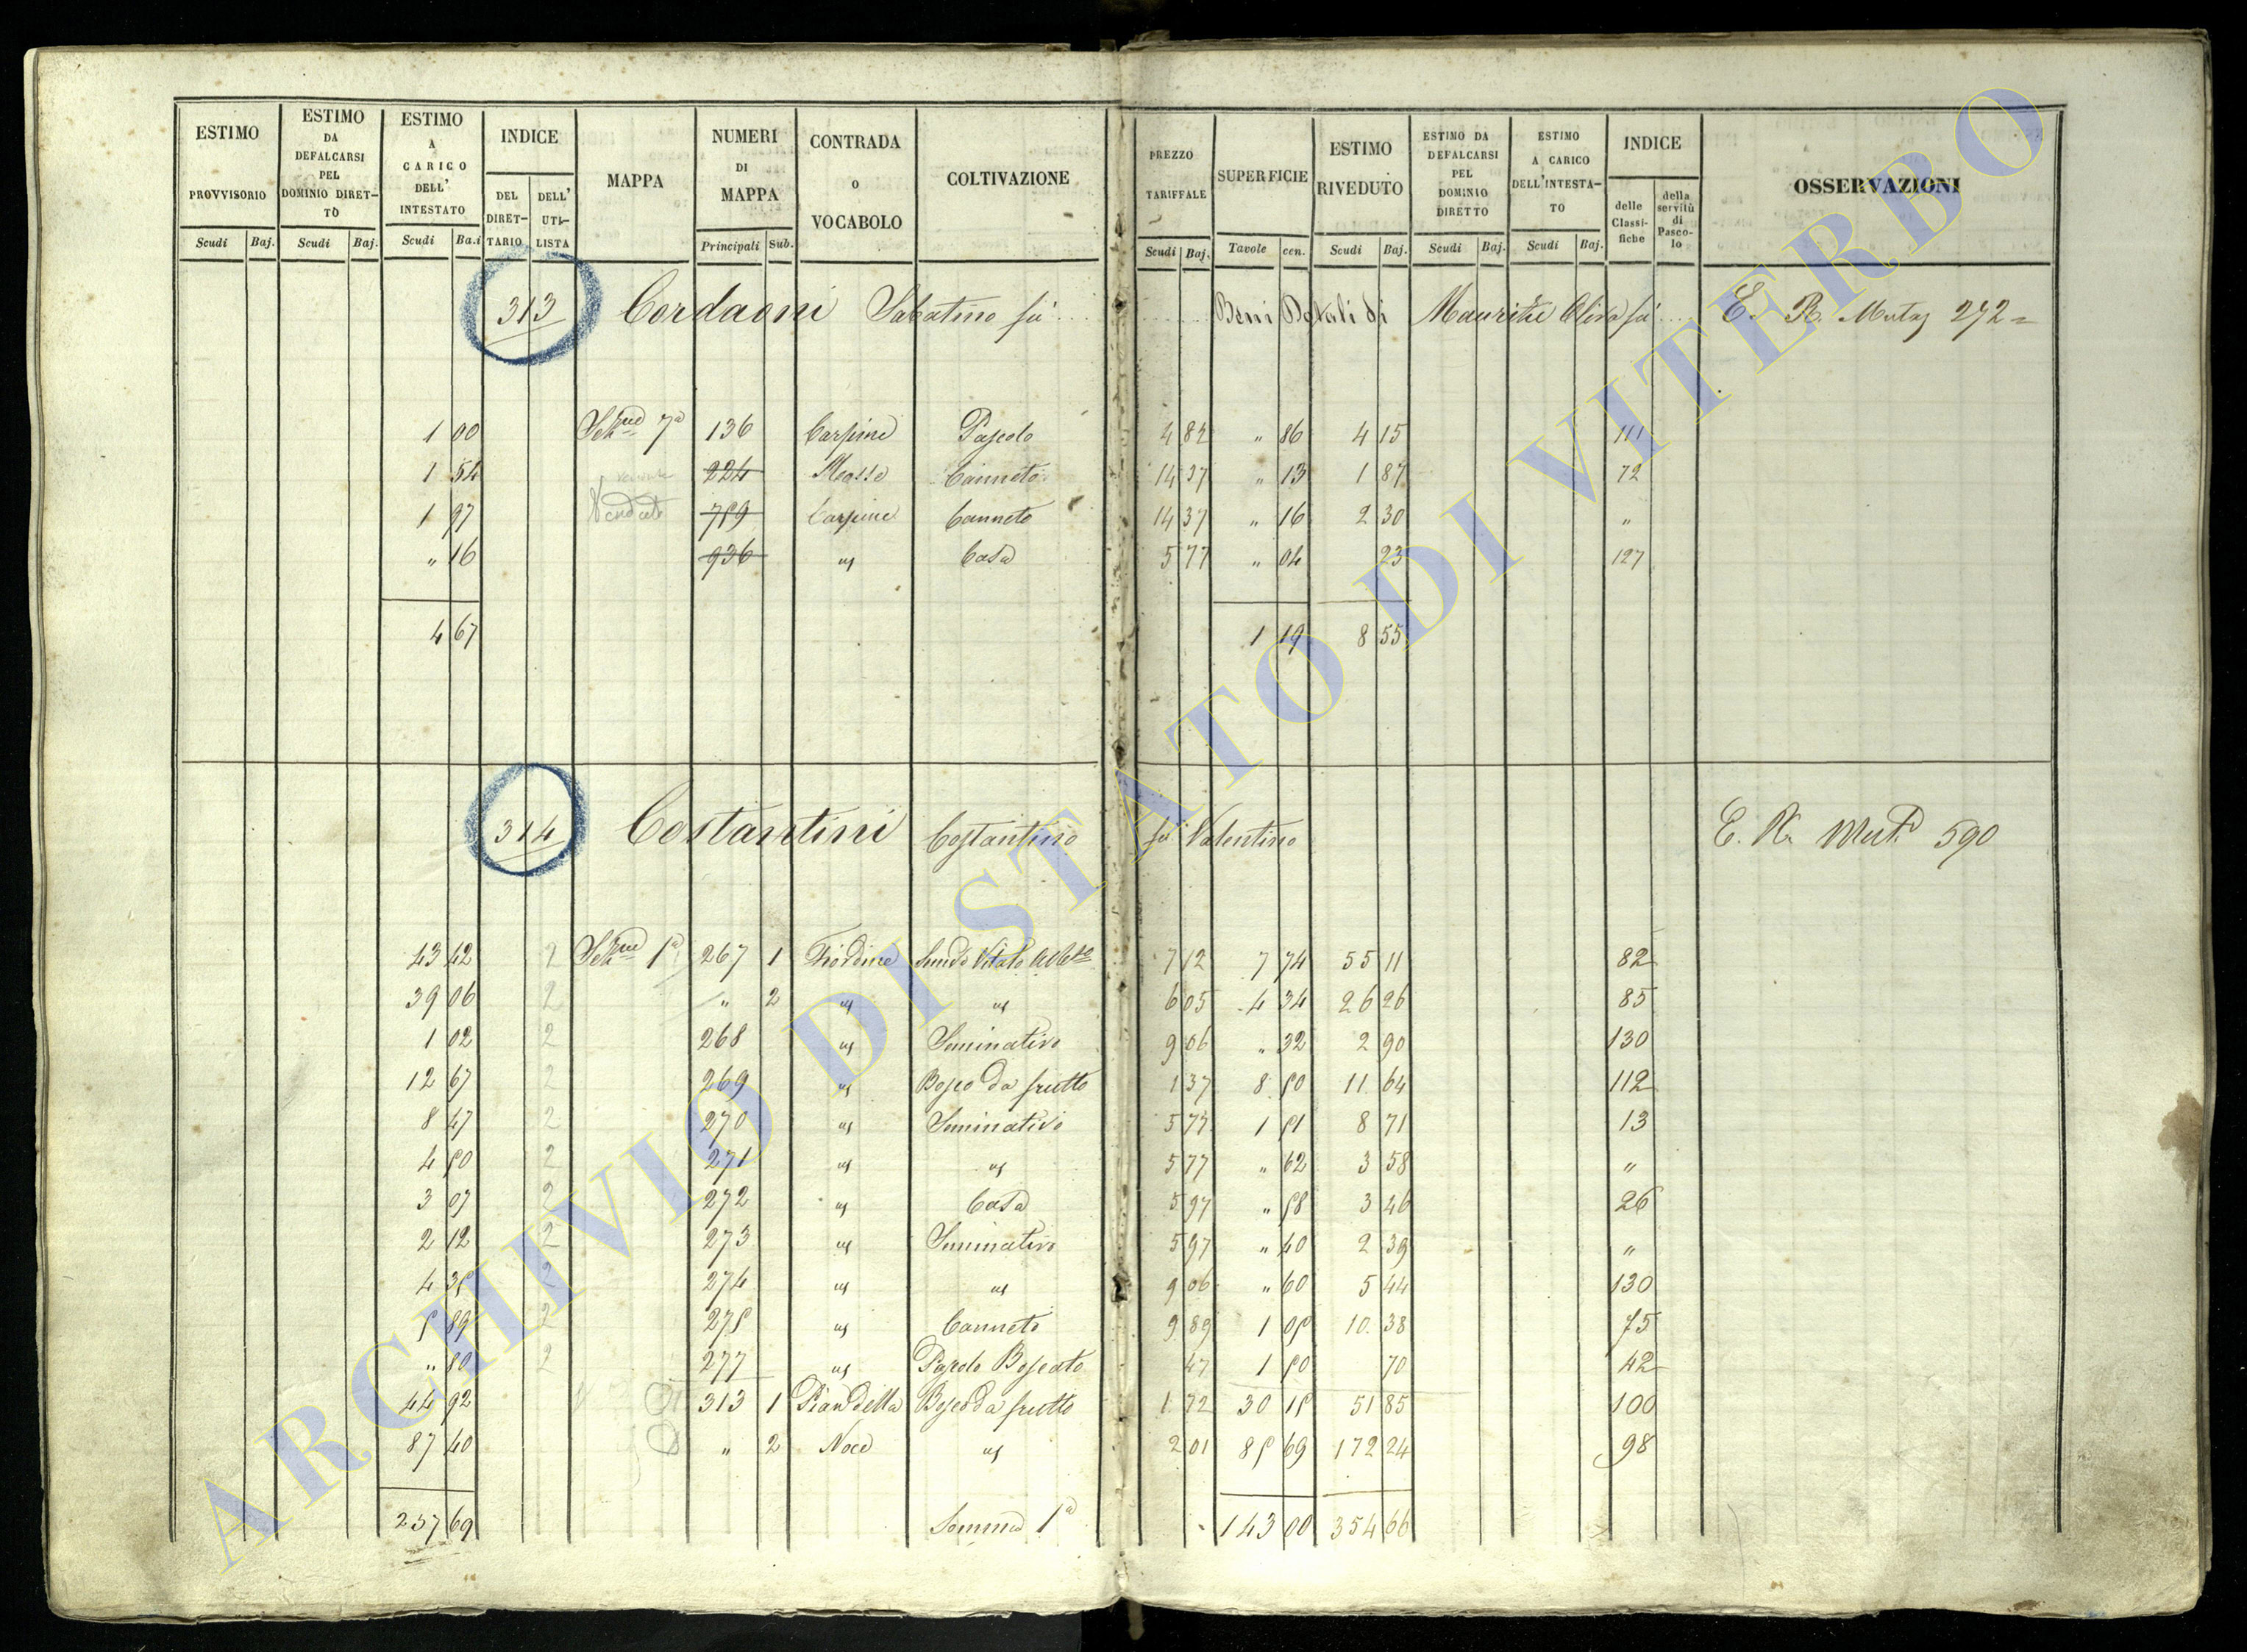 ESTIMO PROVVISORIO Scudi Baj. ESTIMO DA DEFALCARSI PEL DOMINIO DIRETTO Scudi Baj. ESTIMO A CARICO DELL' INTESTATO Scudi Ba.i INDICE DEL DIRETTARIO DELL' UTILISTA MAPPA NUMERI DI MAPPA Principali Sub. CONTRADA O VOCABOLO COLTIVAZIONE PREZZO TARIFFALE Scudi Baj. SUPERFICIE Tavole cen. ESTIMO RIVEDUTO Scudi Baj. ESTIMO DA DEFALCARSI PEL DOMINIO DIRETTO Scudi Baj. ESTIMO A CARICO DELL'INTESTATO Scudi Baj. INDICE delle Classifiche della servitù di Pascolo OSSERVAZIONI
313 Cordaoni Sabatino fù .... ..... Beni Dotali di Maurizi Oliva fù .... E. R. Mutaz 272 =
1 00 Sezne 7a 136 Carpine Pascolo 4 82 " 86 4 15 111
1 54 224 Mosse Canneto 14 37 " 13 1 87 72
1 97 Venduto 759 Carpine Canneto 14 37 " 16 2 30 "
" 16 936 us Casa 5 77 " 04 23 127
4 67 1 19 8 55
314 Costantini Costantino fù Valentino E. R. Mut. 590
43 42 2 Sezne 1a 267 1 Fiordine 7 12 7 74 55 11 82
39 06 2 " 2 us us 6 05 4 34 26 26 85
1 02 2 268 us Seminativo 9 06 " 32 2 90 130
12 67 2 269 us Bosco da frutto 1 37 8 50 11 64 112
8 47 2 270 us Seminativo 5 77 1 51 8 71 13
4 50 2 271 us us 5 77 " 62 3 58 "
3 07 2 272 us Casa 5 97 " 58 3 46 26
2 12 2 273 us Seminativo 5 97 " 40 2 39 "
4 35 2 274 us us 9 06 " 60 5 44 130
5 89 2 275 us Canneto 9 89 1 05 10 38 75
" 80 2 277 us Pascolo Boscato 47 1 50 70 42
44 92 313 1 Pian della Bosco da frutto 1 72 30 15 51 85 100
87 40 " 2 Noce us 2 01 85 69 172 24 98
257 69 Somma 1a 143 00 354 66
ARCHIVIO DI STATO DI VITERBO